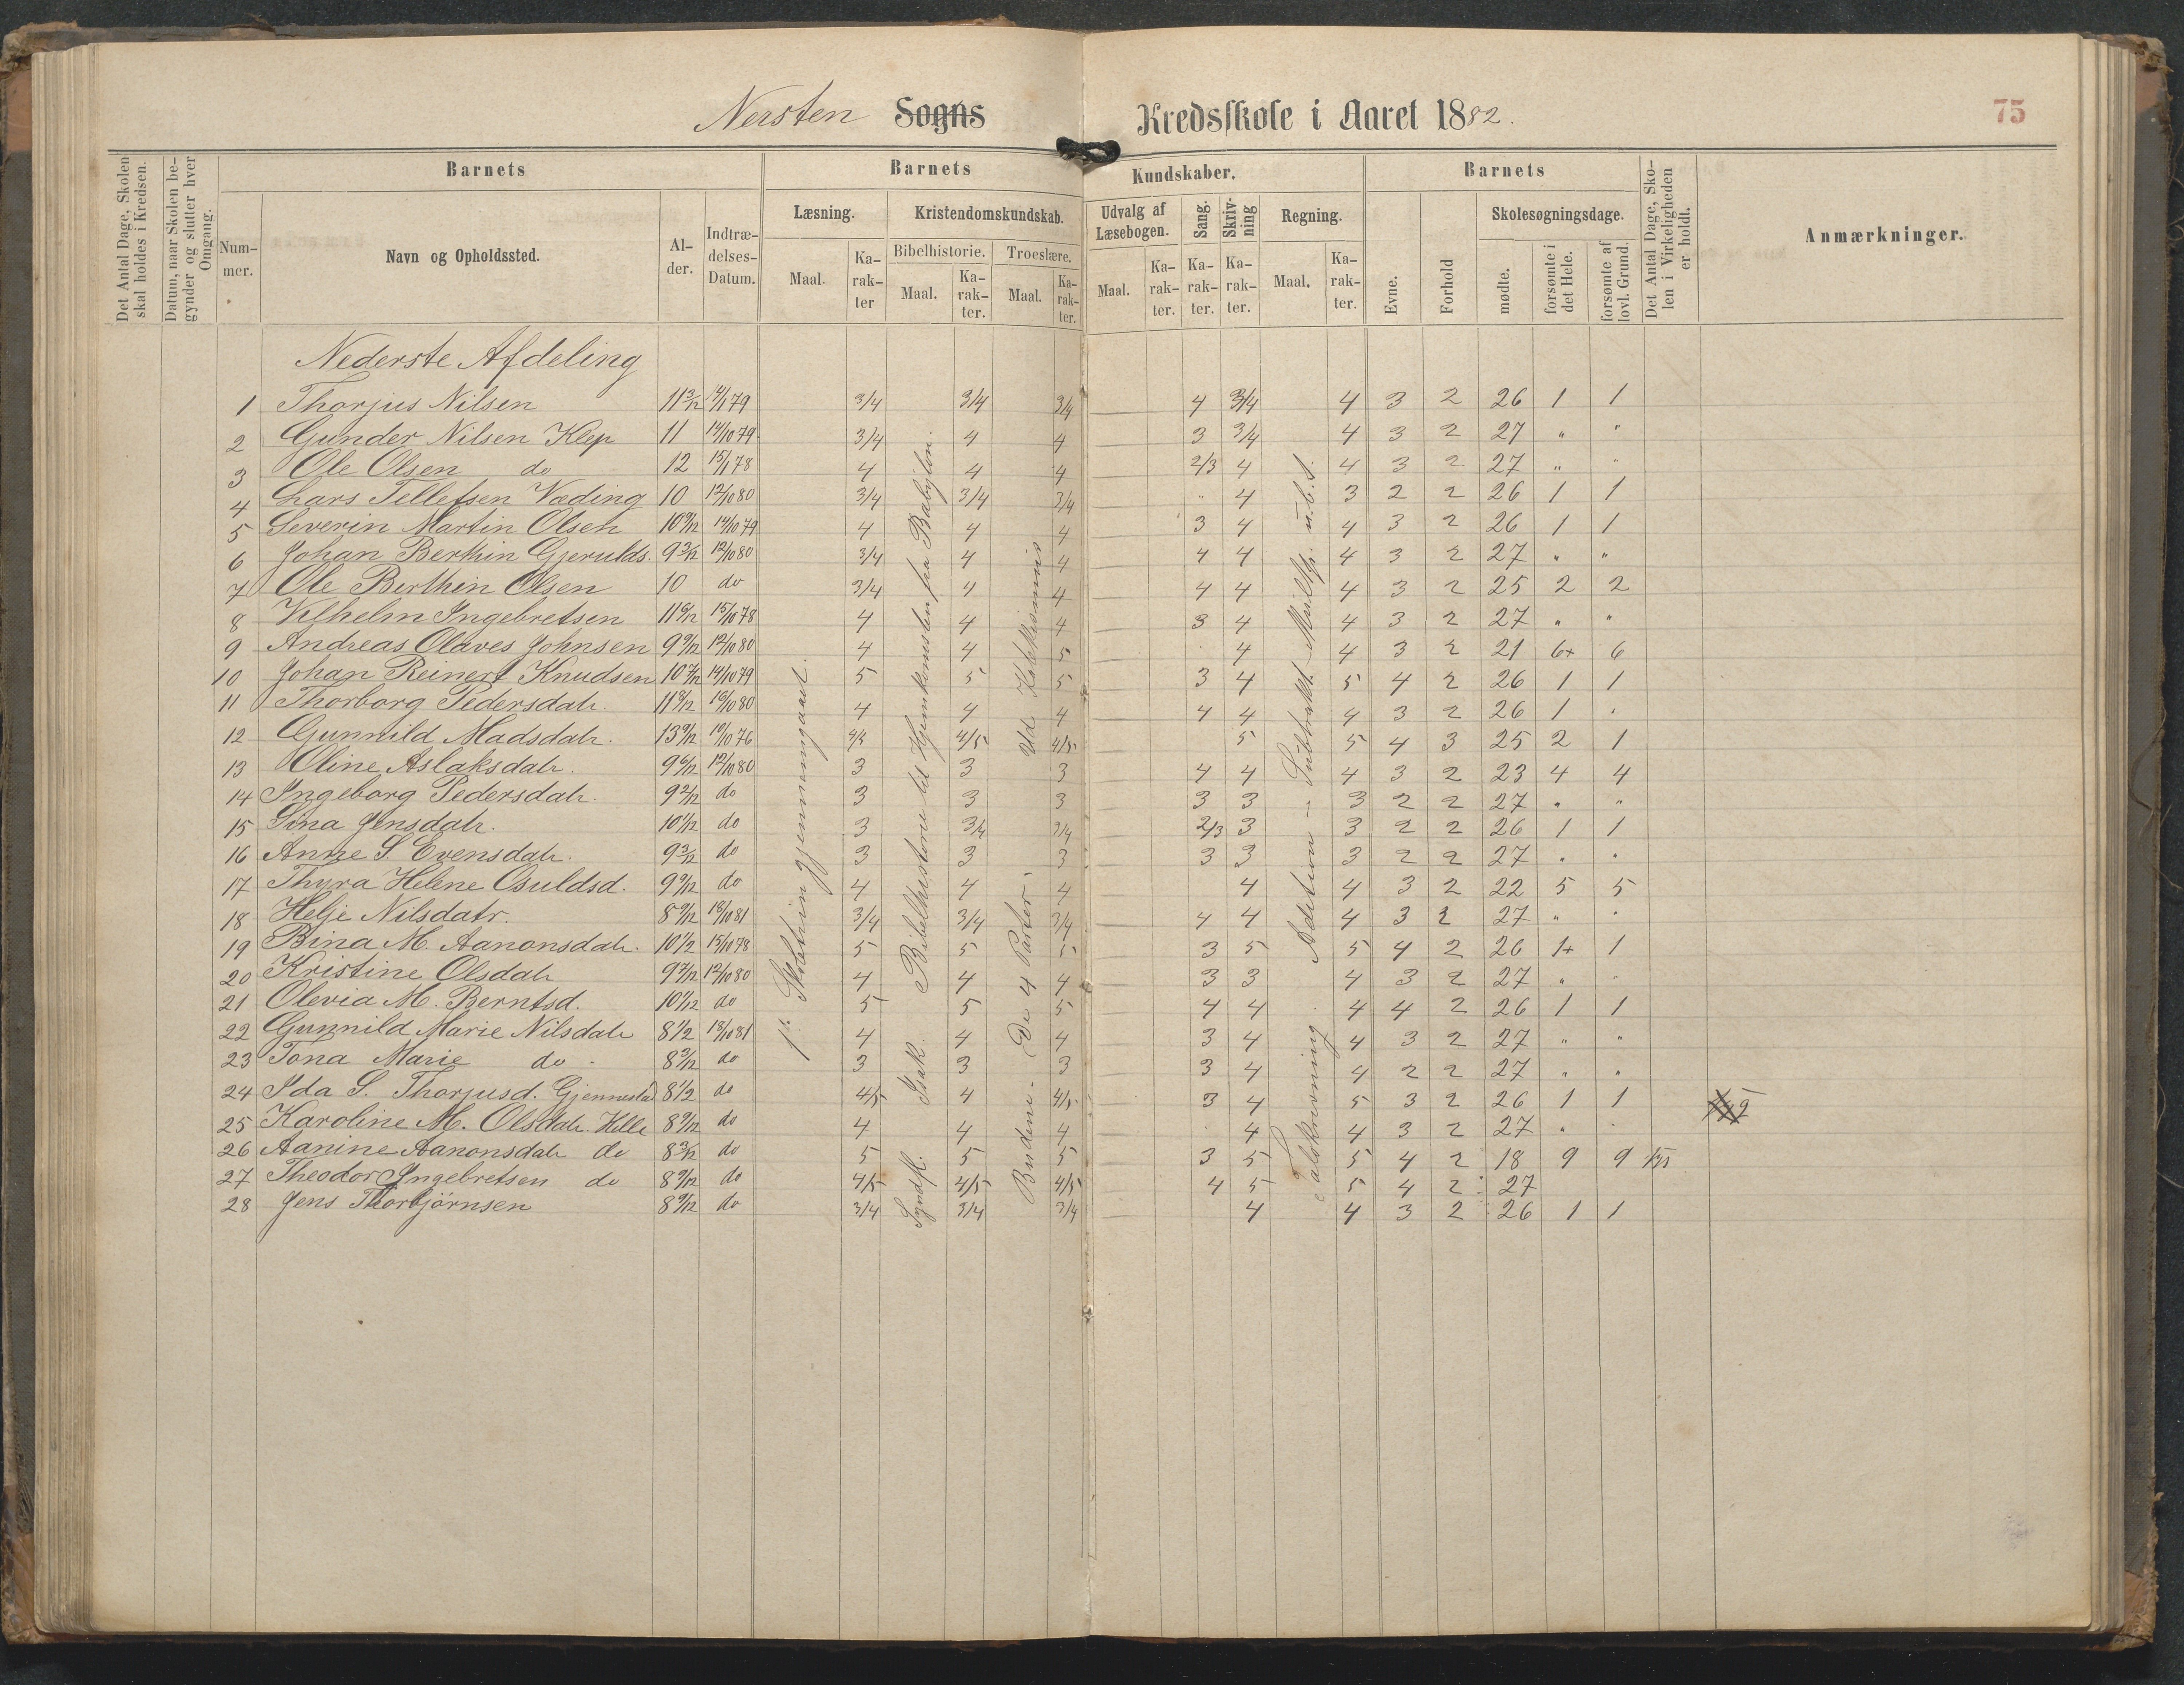 Nersten Sogns Kredsskole i Aaret 1882.
75
Det Antal Dage, Skolen skal holdes i Kredsen.
Datum, naar Skolen begynder og slutter hver Omgang.
Barnets
Nummer.
Navn og Opholdssted.
Alder.
Indtrædelses-Datum.
Barnets Kundskaber.
Læsning.
Maal.
Karakter
Kristendomskundskab.
Bibelhistorie.
Maal.
Karakter.
Troeslære.
Maal.
Karakter.
Udvalg af Læsebogen.
Maal.
Karakter.
Sang.
Karakter.
Skrivning
Karakter.
Regning.
Maal.
Karakter.
Barnets
Evne.
Forhold
Skolesøgningsdage.
mødte.
forsømte i det Hele.
forsømte af lovl. Grund.
Det Antal Dage, Skolen i Virkeligheden er holdt.
Anmærkninger.
Nederste Afdeling
1 Thorjus Nilsen 3/4 3/4 3/4 4 3/4 4 3 2 26 1 1
2 Gunder Nilsen Klep 11 14/10 79 3/4 4 4 3 3/4 4 3 2 27 " "
3 Ole Olsen do 12 4 4 4 2/3 4 4 3 2 27 " "
4 Lars Tellefsen Væding 10 12/10 80 3/4 3/4 3/4 " 4 3 2 2 26 1 1
5 Severin Martin Olsen 10 9/12 14/10 79 4 4 4 3 4 4 3 2 26 1 1
6 Johan Berthin Gjerulds. 9 3/12 12/10 80 3/4 4 4 4 4 4 3 2 27 " "
7 Ole Berthin Olsen 10 do 3/4 4 4 4 4 4 3 2 25 2 2
8 Vilhelm Ingebretsen 15/10 78 4 4 4 3 4 4 3 2 27 " "
9 Andreas Olaves Johnsen 12/10 80 4 4 5 4 4 3 2 21 6+ 6
10 Johan Reinert Knudsen 14/10 79 5 5 5 3 4 5 4 2 26 1 1
11 Thorborg Pedersdatr. 4 4 4 4 4 4 3 2 26 1 "
12 Gunnild Madsdatr. 4/5 4/5 5 5 4 3 25 2 1
13 Oline Aslaksdatr. 12/10 80 3 3 3 4 4 4 3 2 23 4 4
14 Ingeborg Pedersdatr. 9 2/12 do 3 3 3 3 3 3 2 2 27 " "
15 Sina Jensdatr. 10 1/12 do 3 3/4 3/4 2/3 3 3 2 2 26 1 1
16 Anne S. Evensdatr. 9 3/12 do 3 3 3 3 3 3 2 2 27 " "
17 Thyra Helene Osuldsd. 9 9/12 do 4 4 4 4 4 3 2 22 5 5
18 Helje Nilsdatr. 8 9/12 18/10 81 3/4 3/4 3/4 4 4 4 3 2 27 " "
19 Bina M. Aanonsdatr. 10 1/2 15/10 78 5 5 5 3 5 5 4 2 26 1+ 1
20 Kristine Olsdatr 12/10 80 4 4 4 3 3 4 3 2 27 " "
21 Olevia M. Berntsd. do 5 5 5 4 4 4 4 2 26 1 1
22 Gunnild Marie Nilsdatr 8 1/2 18/10 81 4 4 4 3 4 4 3 2 27 " "
23 Tona Marie do 8 3/12 do 3 3 3 3 4 4 2 2 27 " "
24 Ida S. Thorjusd. Gjennestad 8 1/2 do 4/5 4 4/5 3 4 5 3 2 26 1 1
25 Karoline M. Olsdatr. Helle 8 9/12 do 4 4 4 4 4 3 2 27 " "
26 Aanine Aanonsdatr do 8 3/12 do 5 5 5 3 5 5 4 2 18 9 9
27 Theodor Ingebretsen do 8 9/12 do 4/5 4/5 4/5 4 5 5 4 2 27
28 Jens Thorbjörnsen 8 9/12 do 3/4 3/4 3/4 4 4 3 2 26 1 1
gjennemgaaet.
Syndfl. Isak. Bibelhistorie til Hjemkomsten fra Babylon.
Budene. De 4 Parter. Ud Katekismus
Talskrivning. Adition - Subtrakt.